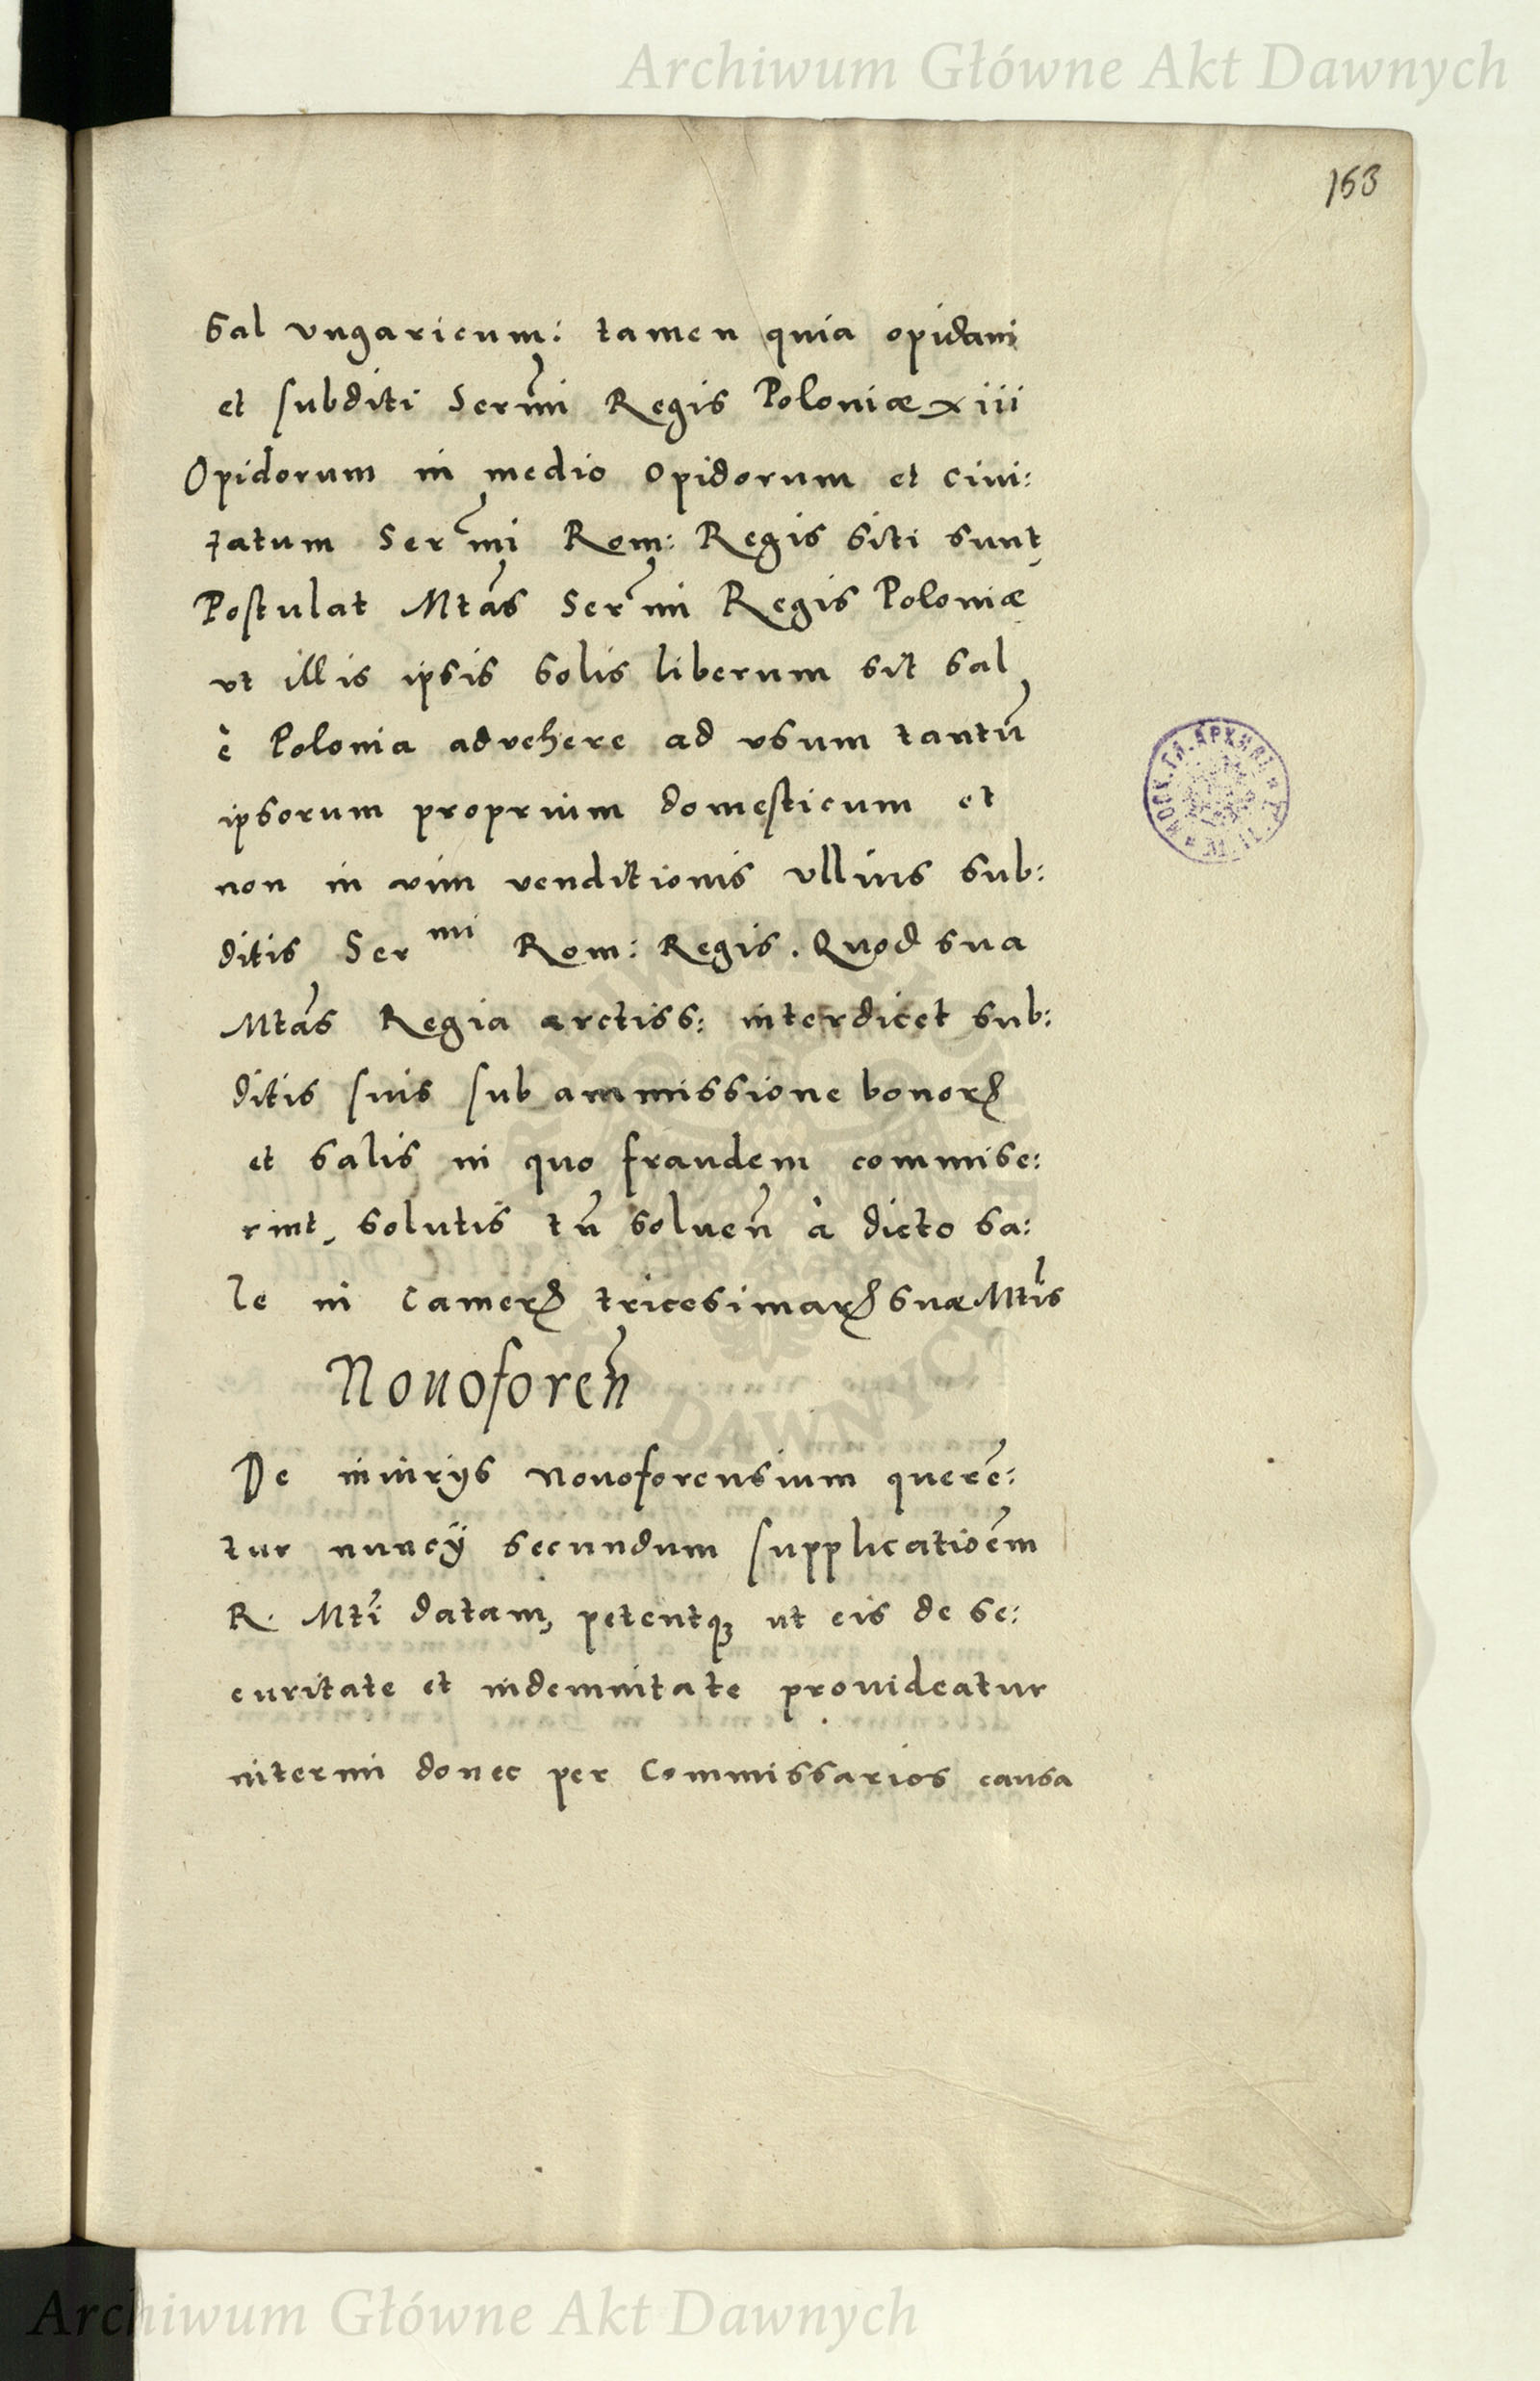 Archiwum Główne Akt Dawnych
153
Sal vngaricum: tamen quia opidani
et subditi Ser̃mi Regis Poloniæ xiii
Opidorum in medio opidorum et ciui:
tatum Ser̃mi Rom: Regis siti sunt,
Postulat Mtas̃ Ser̃mi Regis Poloniæ
vt illis ipsis solis liberum sit sal
è Polonia advehere ad vsum tantũ
ipsorum proprium domesticum et
non in vim venditionis vllius sub:
ditis Ser mi Rom: Regis. Quod sua
Mtas̃ Regia arctiss: interdicet sub:
ditis suis sub ammissione bonorꝝ
et salis in quo fraudem commise:
rint, solutis tñ soluen̄ à dicto sa:
le in camerꝝ tricesimarꝝ suæ Mtis̃
Nouoforen̄
De iniurijs Nouoforensium querẽ:
tur nuncÿ secundum supplicatioẽm
R. Mtĩ datam, petentqꝫ ut eis de se:
curitate et indemnitate prouideatur
interim donec per Commissarios causa
DAWNYCH
Archiwum Główne Akt Dawnych